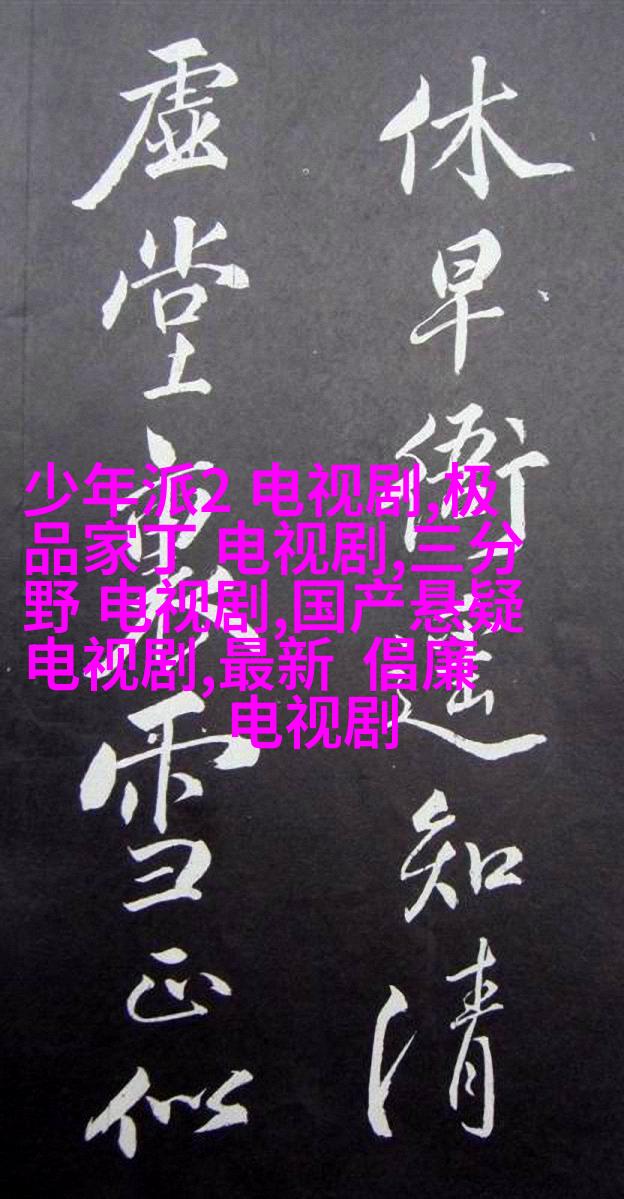 休早衙遥知清
虚堂雪正似
少年派2 电视剧,极
品家丁 电视剧,三分
野 电视剧,国产悬疑
电视剧,最新 倡廉
电视剧